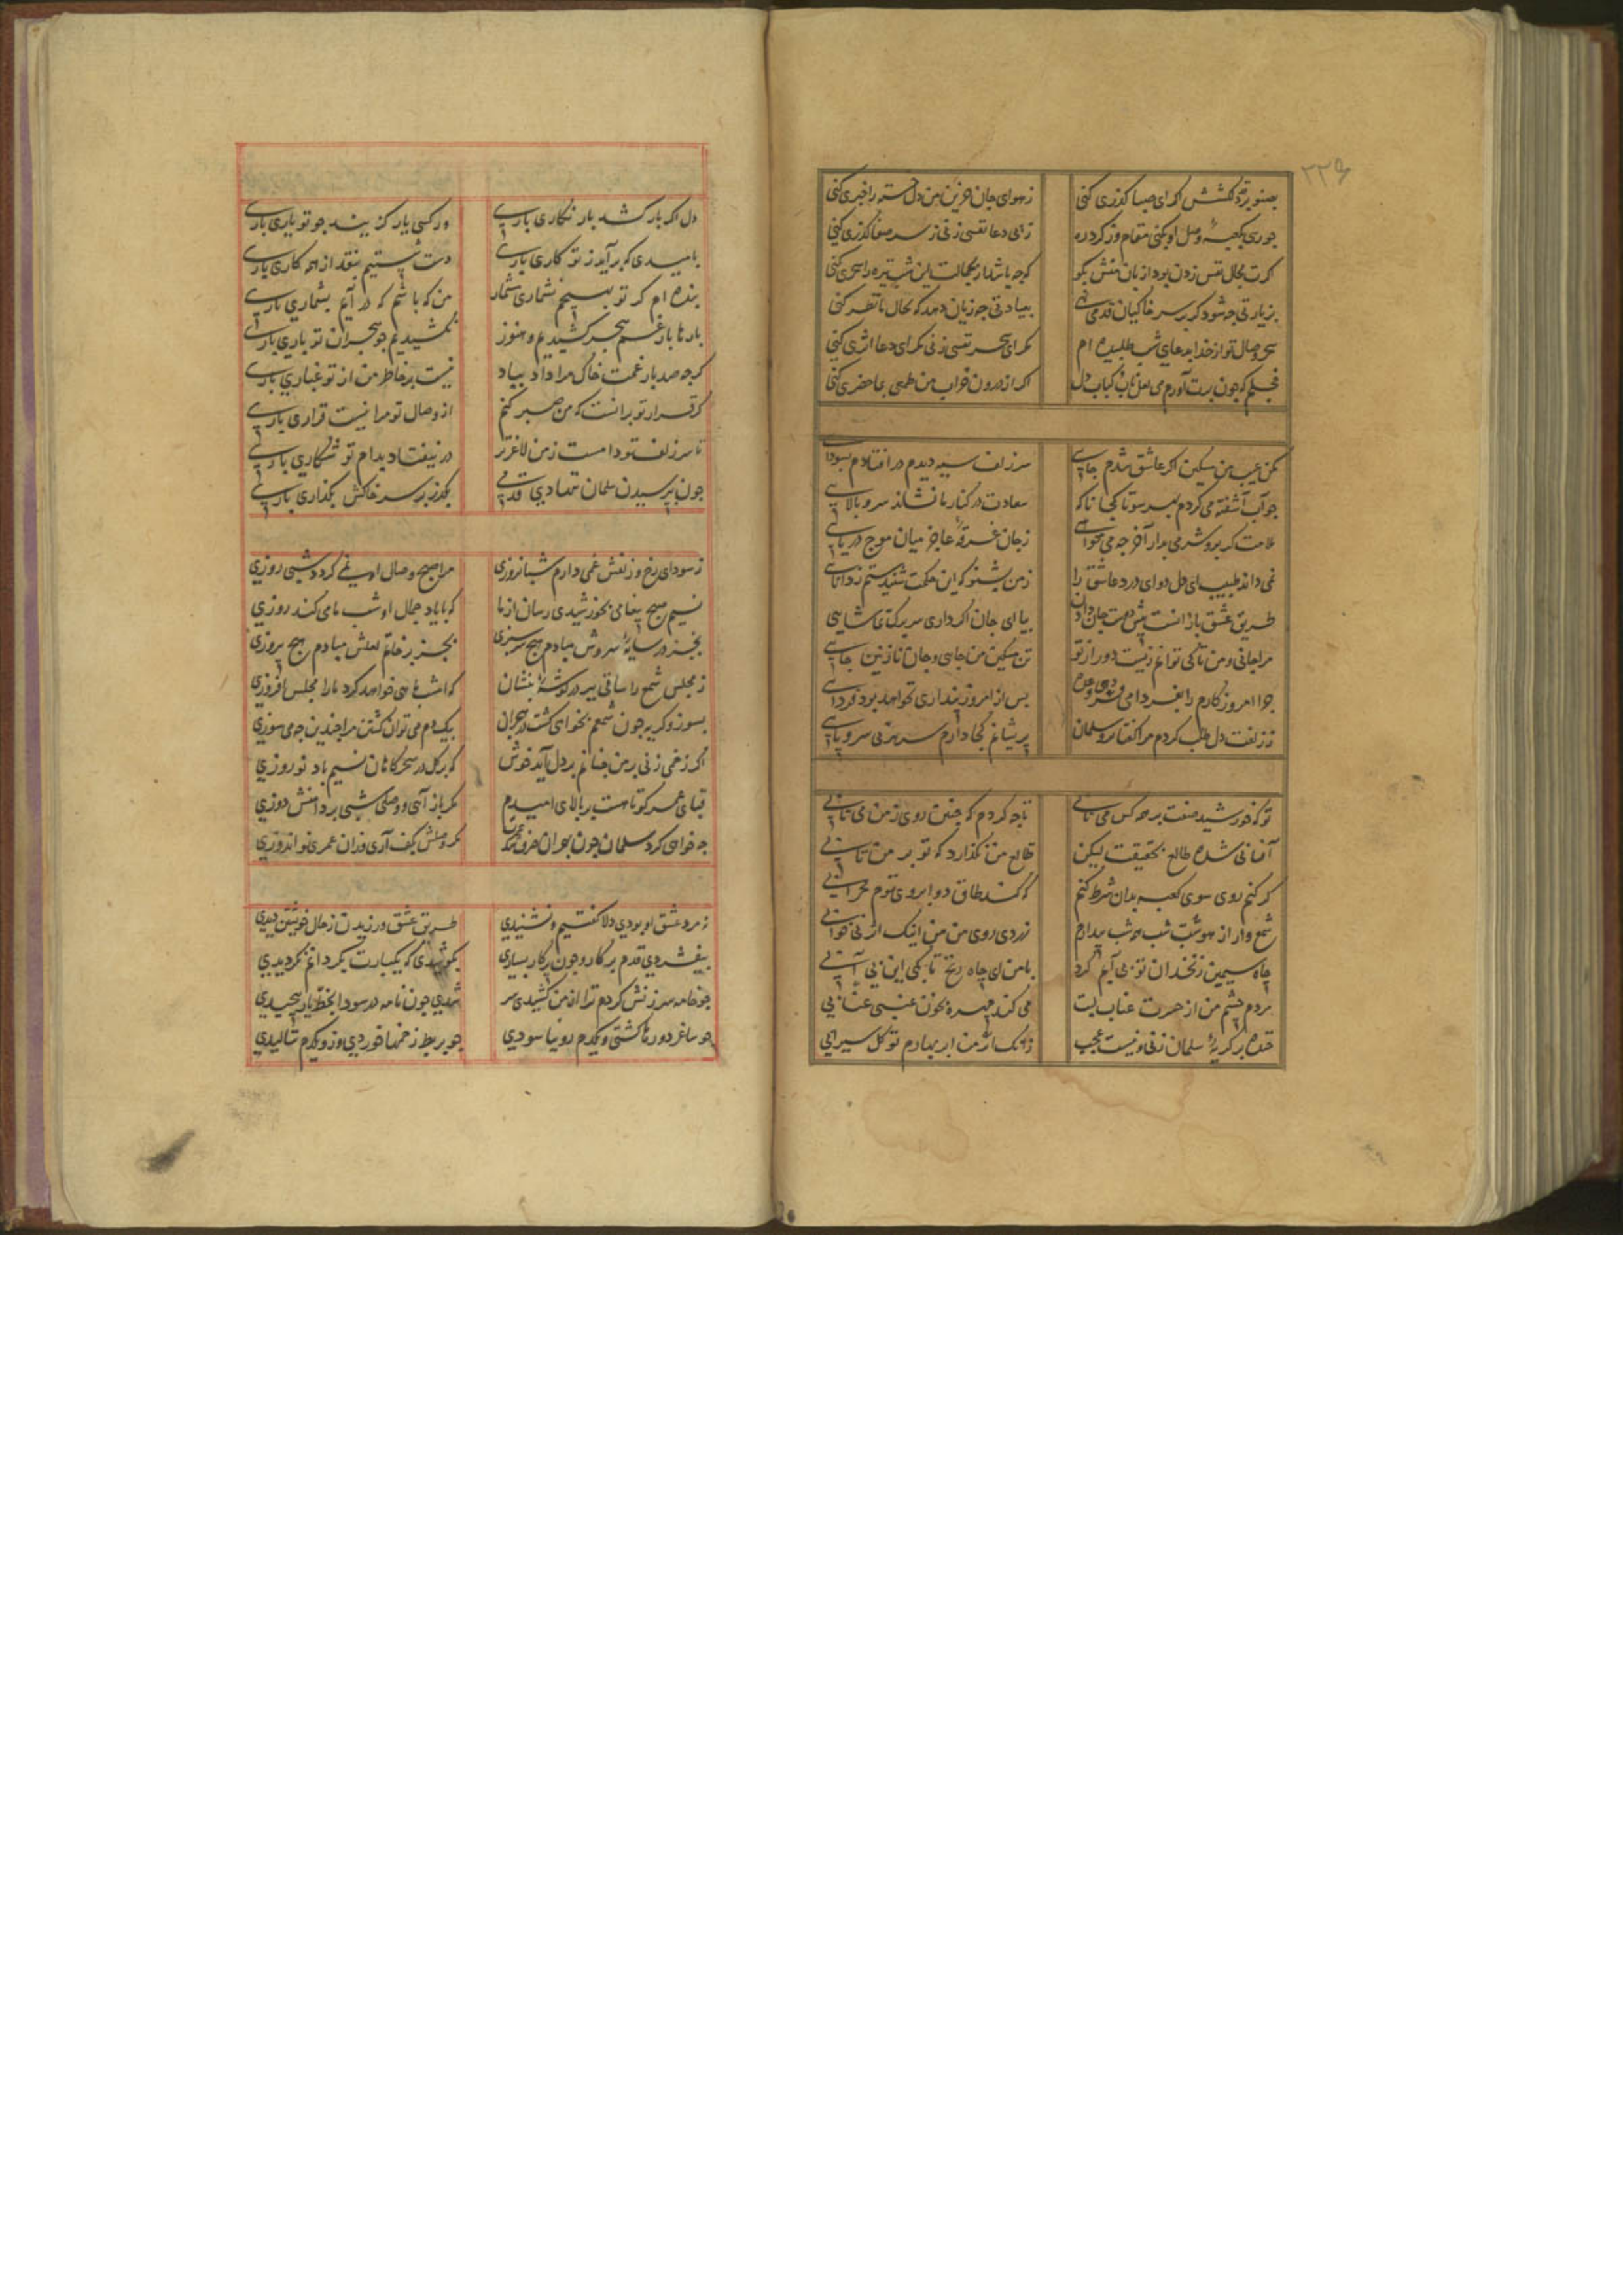 ۲۲۶
بصنوبر قد دلکشش اگر ای صبا گذری کنی
ز هوای جان حزین من دل خسته را خبری کنی
چو رسی بکعبهٔ وصل او بکنی مقام و ز گرد ره
گرت مجال نفس زدن بود از زبان منش بگو
که چه باشد ار بجمالت این شب تیره را سحری کنی
بزیارتی چه شود که بر سر خاکیان قدمی نهی
بعیادتی چه زیان دهد که بحال ما نظری کنی
سحر وصال تو از خدا بدعای شب طلبیده ام
مگر ای سحر نفسی زنی مگر ای دعا اثری کنی
خجلم که چون برت آورم می لعل ناب و کباب دل
اگر از درون خراب من طمعی بماحضری کنی
مکن عیب من مسکین اگر عاشق شدم جایی
سر زلف سیه دیدم در افتادم بسودایی
چو آب آشفته می گردم بهر سو تا کجا ناگه
سعادت در کنار ما نشاند سرو بالایی
ملامت گر برو شرمی بدار آخر چه می خواهی
ز جان غرقهٔ عاجز میان موج دریایی
نمی داند طبیب ای دل دوای درد عاشق را
ز من بشنو که این حکمت شنیدستم ز دانایی
طریق عشق بازانست پیش دوست جان دادن
بیا ای جان اگر داری سر برگ تماشایی
مرا جانی و من تا کی توانم زیست دور از تو
تن مسکین من جایی و جان نازنین جایی
چرا امروز کارم را بفردا می
پس از امروز پنداری نخواهد بود فردایی
ز زلفت دل طلب کردم مرا گفتا برو سلمان
پریشانم کجا دارم سر هر بی سر و پایی
تو که خورشید صفت بر همه کس می تابی
تا چه کردم که چنین روی ز من می تابی
آفتابی شده طالع بحقیقت لیکن
طالع من نگذارد که تو بر من تابی
گر کنم روی سوی کعبه بدان شرط کنم
که کند طاق دو ابروی توم محرابی
شمع وار از هوست شب همه شب بیدارم
زردی روی من من اینک اثر بی خوابی
چاه سیمین زنخدان تو بی آبم کرد
با من ای چاه زنخ تا بکی این بی آبی
مردم چشم من از حسرت عناب لبت
می کند چهره بخون عنبی عنابی
خنده بر گریهٔ سلمان زنی و نیست عجب
زانک از من ابر بهارم تو گل سیرابی
دل اگر بار کشد بار نگاری باری
ور کسی یار گزیند چو تو یاری باری
بامیدی که برآید ز تو کاری باری
دست شستیم بنقد از همه کاری باری
بنده ام گر تو بهیچم نشماری شمار
من که باشم که در آیم بشماری باری
بارها بار غم هجر کشیدیم و هنوز
نکشیدیم چو هجران تو باری باری
گرچه صد بار غمت خاک مرا داد بباد
نیست بر خاطر من از تو غباری باری
گر قرار تو برانست که من صبر کنم
از وصال تو مرا نیست قراری باری
تا سر زلف تو دامست ز من لاغرتر
در نیفتاد بدام تو شکاری باری
چون بپرسیدن سلمان ننهادی قدمی
بگذر بر سر خاکش بگذاری باری
ز سودای رخ و زلفش غمی دارم شبانروزی
مرا صبح وصال او نمی گردد شبی روزی
نسیم صبح پیغامی بخورشیدی رسان از ما
که با یاد جمال او شب ما می کند روزی
بجز در سایهٔ سروش مبادم هیچ سر سبزی
بجز بر خاتم لعلش مبادم هیچ پیروزی
ز مجلس شمع را ساقی ببر در گوشهٔ بنشان
که امشب ماهی خواهد کرد ما را مجلس افروزی
بسوز و گریه چون شمعم بخوای کشت در هجران
بیک دم می توان کشتن مرا چندین چه می سوزی
اگر زخمی زنی بر من چنانم بر دل آید خوش
که بر گل در سحرگاهان نسیم باد نوروزی
قبای عمر کوتاهست بر بالای امیدم
مگر باز آئی و وصلی شبی بر دامنش دوزی
چه خواهی کرد سلمان چون
مگر وصلش بکف آری وزان عمری نو اندوزی
نه مرد عشق او بودی دلا گفتیم و نشنیدی
طریق عشق ورزیدن ز حال خویشتن دیدی
بیفشردی قدم بر کار و چون پرکار بسیاری
بکوشیدی که یکبارت بگرد انم نگردیدی
چو خامه سرزنش کردم ترا از من کشیدی سر
شدی چون نامه در سودا بخط یار پیچیدی
چو ساغر دورها گشتی و یکدم رو نیاسودی
چو بربط زخمها خوردی وزو یکدم ننالیدی